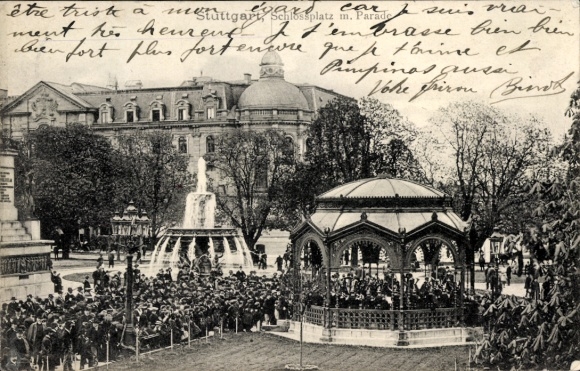 être triste à mon égard car je suis vrai-
Stuttgart, Schlossplatz m. Parade
ment très heureux je t'embrasse bien bien
bien fort plus fort encore que je t'aime et
Pimpinas aussi
Votre
Binot